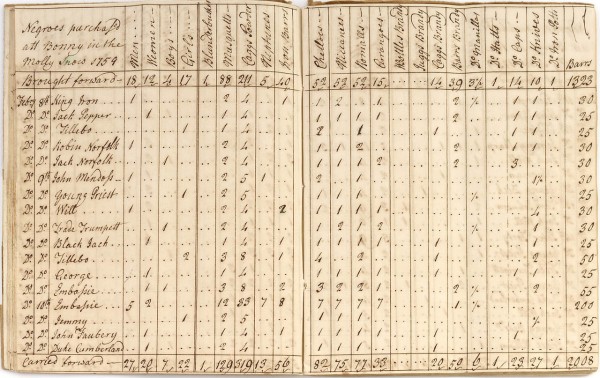 Negroes purchas'd
att Bonny in the
Molly Snow 1759
Men
Women
Boys
Girls
Blunderbusses
Musquetts
Caggs Powder
Iron Barrs
Chelloes
Nicanees
Romalls
Bottles Brandy
Caggs Brandy
Dº Manillas
Dº Hatts
Dº Caps
Dº Knives
Barrs
Brought forward 18 12 4 17 1 88 211 5 40 52 52 52 15 14 39 3½ 1 14 10 1 1323
Feby 8th King Iron 1 2 4 1 1 2 1 2 30
Dº Dº Jack Pepper 1 2 4 1 1 1 1 2 25
Dº Dº Tillebo 1 2 4 1 2 1 1 25
Dº Dº Robin Norfolk 1 2 4 1 1 2 2 1 30
Dº Dº Jack Norfolk 1 2 4 1 1 1 2 2 3 30
Dº 9th John Mendoss 1 2 5 1 2 1 30
Dº Dº Young Priest 1 2 5 1 1 1 25
Dº Dº Will 1 2 4 2 1 1 1 1 4 30
Dº Dº Trade Trumpett 1 2 4 1 1 2 1 2 30
Dº Dº Black Jack 1 2 4 1 1 1 1 1 25
Dº Dº Tillebo 2 3 8 1 4 2 2 50
Dº Dº George 1 2 4 1 1 1 1 25
Dº Dº Embassie 1 1 3 8 2 3 2 2 1 2 55
Dº 10th Embassie 5 2 12 33 7 8 7 7 7 7 1 200
Dº Dº Jemmy 1 2 5 1 1 1 25
Dº Dº John Tauberry 1 2 4 1 1 1 1 1 25
Dº Dº Duke Cumberland 1 2 4 1 1 1 1 1 25
Carried forward 27 20 7 22 1 129 319 13 56 82 75 77 33 20 52 6 1 23 27 1 2008